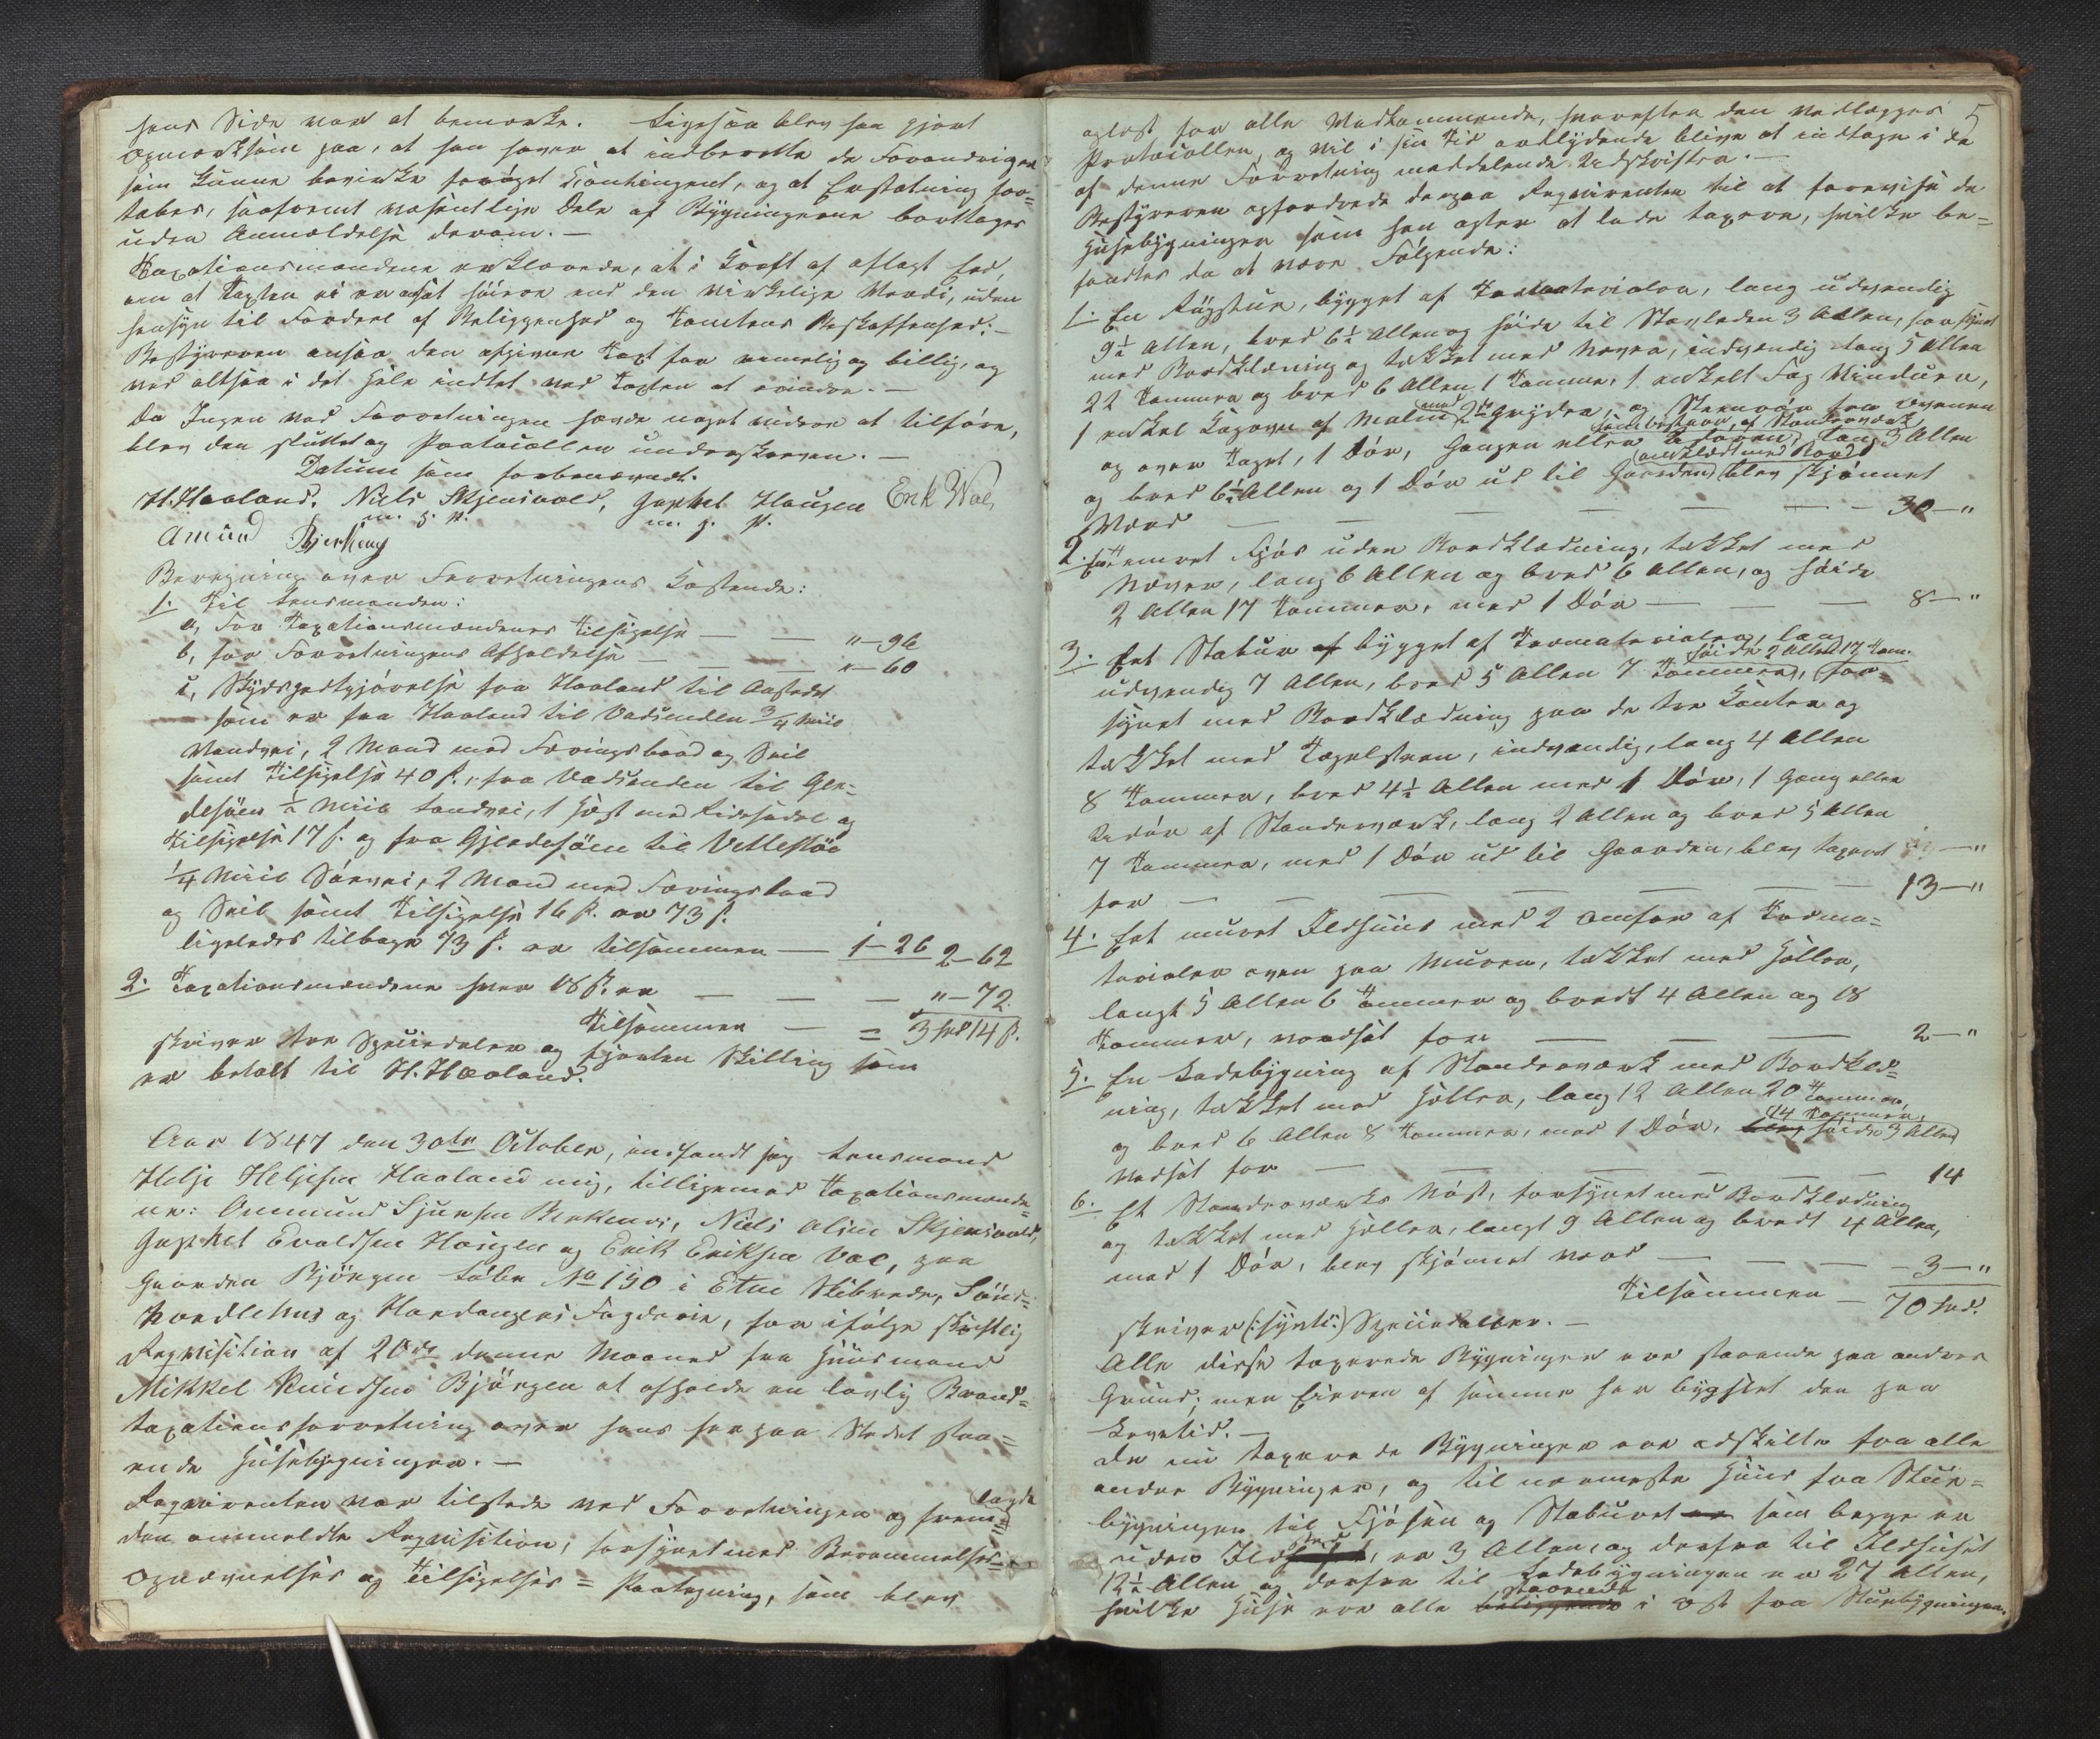 hans Side var at bemærke. Ligesaa blev han gjort
opmærksom paa, at han haver at indberette de Forandringer
som kunne bevirke forøget Contingent, og at Erstatning for=
tabes, saafremt væsentlige Dele af Bygningerne borttages
uden Anmeldelse derom. —
Taxationsmændene erklærede, at i Kraft af aflagt Eed,
um at Taxten ei er ansat høiere end den virkelige Værdi, uden
Hensyn til Fordeel af Beliggenhed og Tomtens Beskaffenhed: —
Bestyreren ansaa den afgivne Taxt for rimelig og billig, og
ved altsaa i det Hele indtet ved Taxten at erindre. —
Da Ingen ved Forretningen havde noget videre at tilføre,
blev den sluttet og Protocollen underskreven. —
Datum som forbenævnt.
H. Haaland. Niels Skjensvold, Japhet Haugen Erik Vae,
m. p. P. m. p. P.
Amund Bjerkenes
Beregning over Forretningens Kostende:
1. Til Lensmanden:
a, For Taxationsmændenes Tilsigelse — — " – 96
b, for Forretningens Afholdelse — — — " – 60
c, Skydsgodtgjørelse fra Haaland til Aastedet
som er fra Haaland til Vadsenden 3/4 Miil
Vandvei, 2 Mand med Færingsbaad og Seil
samt Tilsigelse 40 ß., fra Vadsenden til Gjer=
desøen 1/2 Miil Landvei, 1 Hest med Ridesadel og
Tilsigelse 17 ß. og fra Gjerdesøen til Vettestøe
1/4 Miil Søevei, 2 Mand med Færingsbaad
og Seil samt Tilsigelse 16 ß. er 73 ß.
ligeledes tilbage 73 ß. er tilsammen — 1 – 26 2 – 62
2. Taxationsmændene hver 18 ß. er — — — " – 72.
Tilsammen — = 3 Spd 14 ß.
skriver tre Speciedaler og fjorten Skilling som
er betalt til H. Haaland.
Aar 1847 den 30te October, indfandt jeg Lensmand
Helje Heljesen Haaland mig, tilligemed Taxationsmænde=
ne: Ommund Sjursen Berkenes, Niels Olsen Skjensvold,
Japhet Evaldsen Haugen og Erik Eriksen Vae, paa
Gaarden Bjørgen Løbe No 150 i Etne Skibrede, Sønd=
hordlehns og Hardangers Fogderie, for ifølge skriftlig
Reqvisition af 20de denne Maaned fra Huusmand
Mikkel Knudsen Bjørgen at afholde en lovlig Brand=
taxationsforretning over hans her paa Stedet staa=
ende Huusebygninger. —
Reqvirenten var tilstede ved Forretningen og frem lagde
den anmeldte Reqvisition, forsynet med Berammelses=
Opnævnelses og Tilsigelses = Paategning, som blev
5
oplæst for alle Vedkommende, hvorefter den vedlægges
Protocollen og vil i sin Tid ordlydende blive at indtage i de
af denne Forretning meddelende Udskrifter. —
Bestyreren opfordrede derpaa Reqvirenten til at forevise de
Huusebygninger som han agter at lade taxere, hvilke be=
fandtes da at være Følgende:
1. En Røgstue, bygget af Tørmaterialer, lang udvendig
9 1/2 Allen, bred 6 1/2 Allen og høide til Stavleden 3 Allen, forsynet
med Bordklædning og tækket med Næver, indvendig lang 5 Allen
22 Tommer og bred 6 Allen 1 Tomme, 1 enkelt Fag Vinduer,
1 enkel Kagovn af Malm med 2de Gryder, og Steenrør fra Ovnen
og over Taget, 1 Dør, Gangen eller som bestaar af Standerværk, lang 3 Allen
og bred 6 1/2 Allen og 1 Dør ud til Gaarden beklædt med Bord blev skjønnet
Værd — — — — — — 30 – "
2. Et tømret Fjøs uden Bordklædning, tækket med
Næver, lang 6 Allen og bred 6 Allen, og høide
2 Allen 17 Tommer, med 1 Dør — — — 8 – "
3. Eet Stabur af bygget af Tørmaterialer, lang
udvendig 7 Allen, bred 5 Allen 7 Tommer, høide 2 Allen 17 Tom. for=
synet med Bordklædning paa de tre Kanter og
tækket med Tagelsteen, indvendig, lang 4 Allen
8 Tommer, bred 4 1/2 Allen med 1 Dør, 1 Gang eller
af Standerværk, lang 2 Allen og bred 5 Allen
7 Tommer, med 1 Dør ud til Gaarden, blev taxeret
for — — — — — — 13 – "
4. Eet muret Ildhuus med 2 omfar af Tørma=
terialer oven paa Muren, tækket med Heller,
langt 5 Allen 6 Tommer og bredt 4 Allen og 18
Tommer, værdsat for — — — 2 – "
5. En Ladebygning af Standerværk med Bordklæd=
ning, tækket med Heller, lang 12 Allen 20 Tommer,
og bred 6 Allen 8 Tommer, med 1 Dør, høide 3 Allen 14 Tommer,
værdsat for — — — — — 14
6. Et Standerværks Nøst, forsynet med Bordklædning
og tækket med Heller, langt 9 Allen og bredt 4 Allen,
med 1 Dør, blev skjønnet værd — — — 3 – "
Tilsammen — 70 Spd.
skriver (: sytti :) Speciedaller. —
Alle disse taxerede Bygninger ere staaende paa andres
Grund; men Eieren af samme har bygslet den paa
Levetid. —
De nu taxerede Bygninger ere adskilte fra alle
andre Bygninger, og til nærmeste Huus fra Stue=
bygningen til Fjøsen og Staburet som begge er
uden Ildsted, er 3 Allen, og derfra til Ildhuset
12 1/2 Allen og derfra til Ladebygningen er 27 Allen,
hvilke Huse ere alle beliggende staaende i Øst fra Stuebygningen.